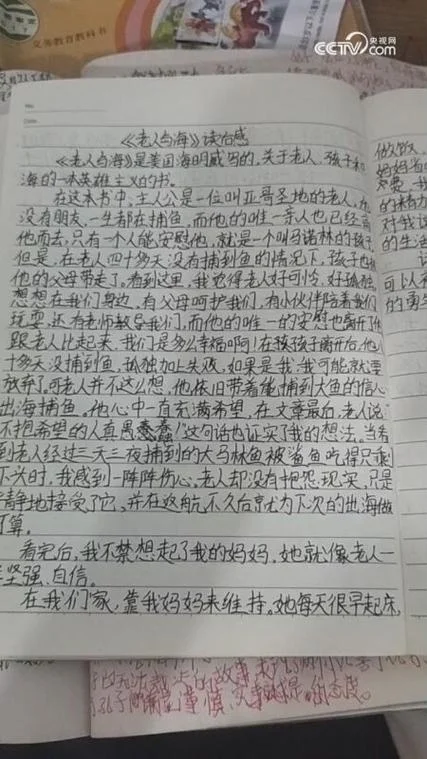 央视网
CCTV.com
义务教育教科书
No.
Date.
《老人与海》读后感
《老人与海》是美国海明威写的,关于老人、孩子和
海的一本英雄主义的书。
在这本书中,主人公是一位叫亚哥圣地的老人,他
没有朋友,一生都在捕鱼,而他的唯一亲人也已经离
他而去,只有一个人能安慰他,就是一个叫马诺林的孩子
但是,在老人四十多天没有捕到鱼的情况下,孩子也被
他的父母带走了。看到这里,我觉得老人好可怜,好孤独
想想在我们身边,有父母呵护我们,有小伙伴陪着我们
玩耍,还有老师教导我们,而他的唯一的安慰也离开了他
跟老人比起来,我们是多么幸福啊!在孩子离开后,他八
十多天没捕到鱼,孤独加上失败,如果是我,我可能就要
放弃了,可老人并不这么想,他依旧带着能捕到大鱼的信心
出海捕鱼。他心中一直充满希望,在文章最后,老人说:
不抱希望的人真愚蠢!这句话也证实了我的想法。当看
到老人经过三天三夜捕到的大马林鱼被鲨鱼吃得只剩
下头时,我感到一阵阵伤心,老人却没有抱怨现实,只是
静地接受了它,并在返航不久后就为下次的出海做
打算。
看完后,我不禁想起了我的妈妈,她就像老人一
坚强、自信。
在我们家,靠我妈妈来维持。她每天很早起床,
做饭、
妈妈
的精力
对我说
的生活
可以
的勇